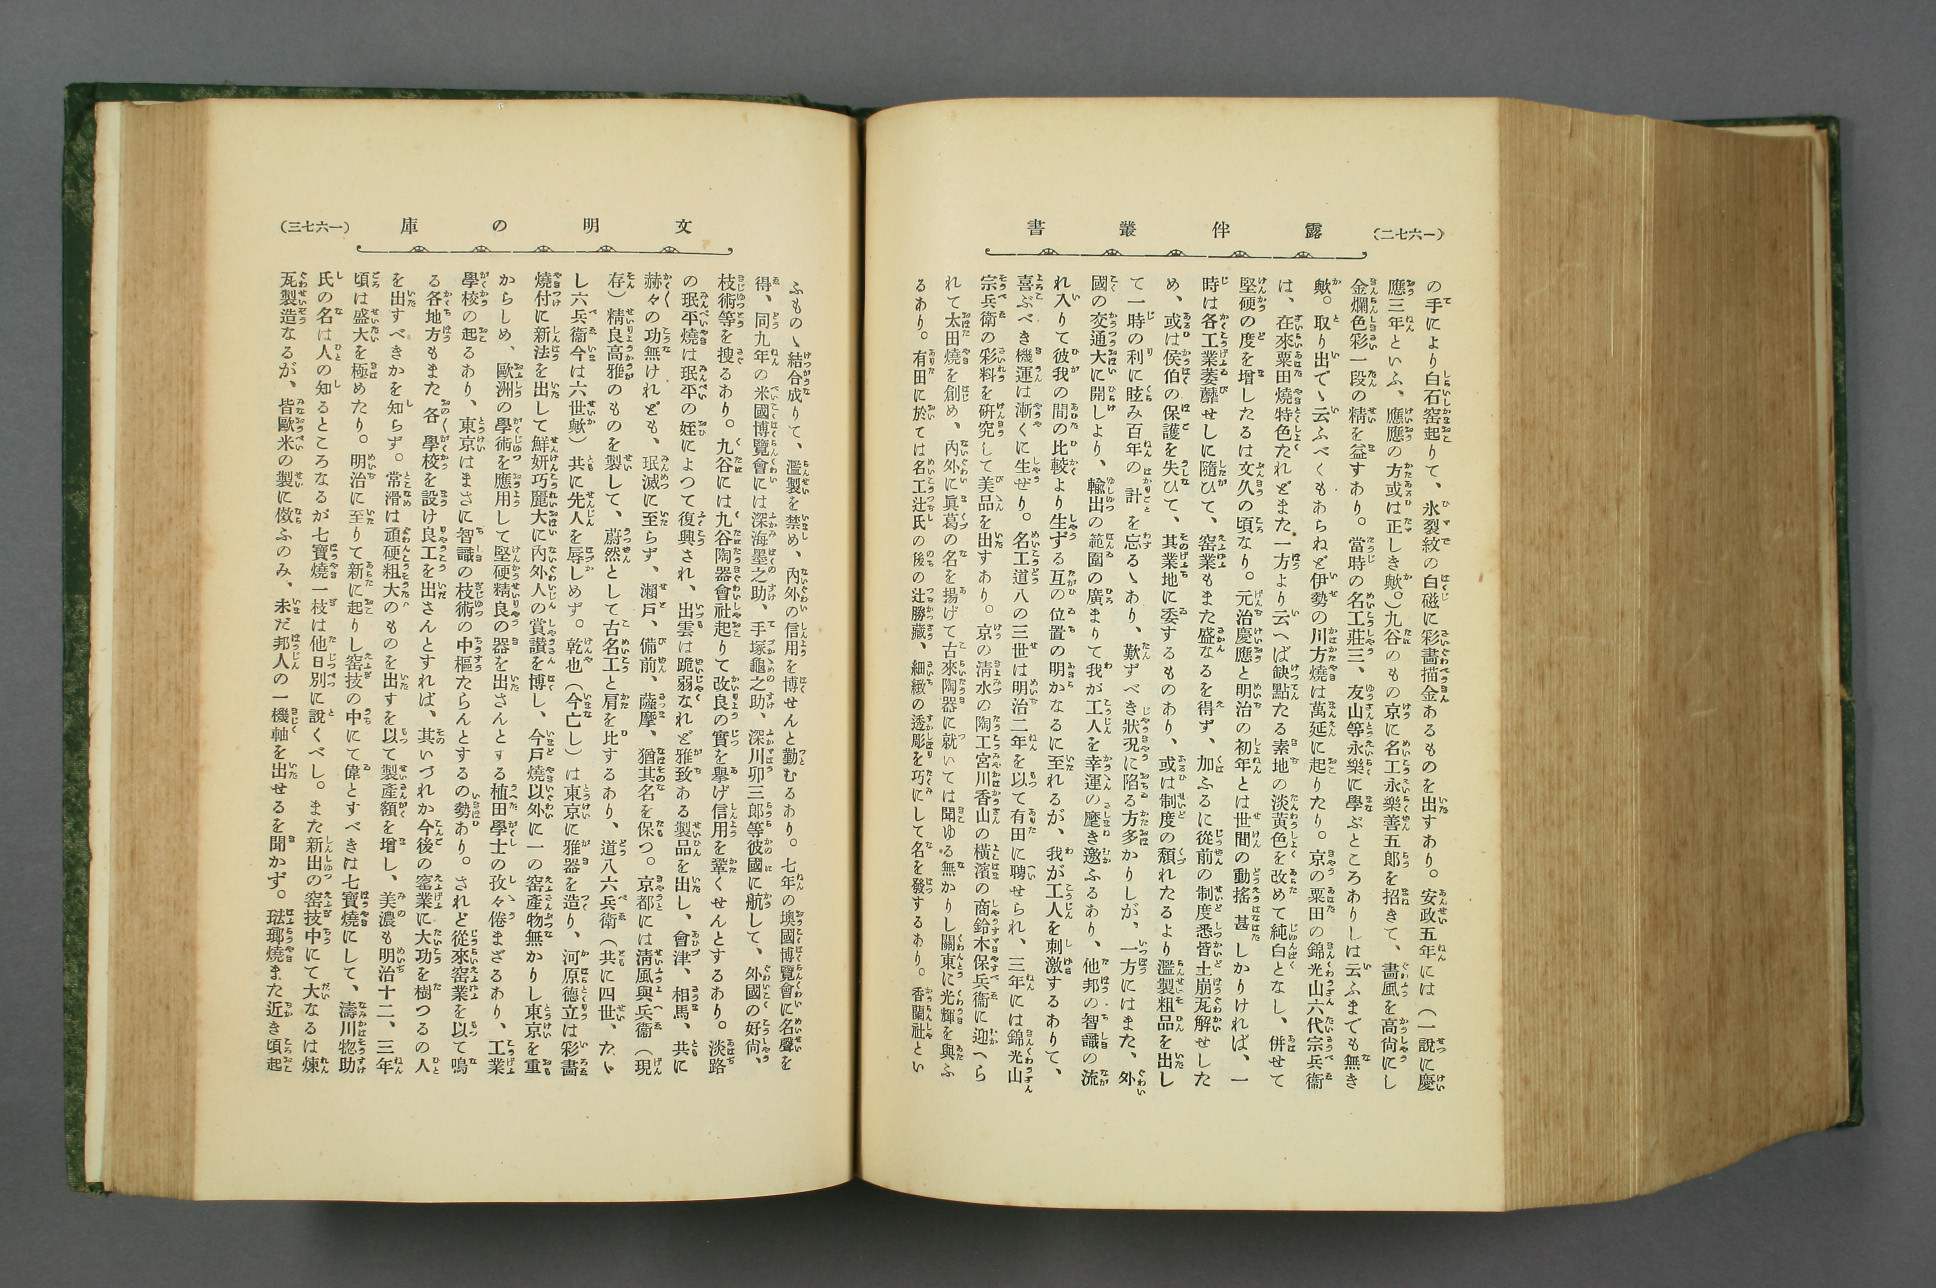 (一六七二)
露伴叢書
の手により白石窑起りて、氷裂紋の白磁に彩畵描金あるものを出すあり。安政五年には(一説に慶
應三年といふ、應應の方或は正しき歟。)九谷のもの京に名工永樂善五郎を招きて、畵風を高尙にし
金爛色彩一段の精を益すあり。當時の名工莊三、友山等永樂に學ぶところありしは云ふまでも無き
歟。取り出でゝ云ふべくもあらねど伊勢の川方燒は萬延に起りたり。京の粟田の錦光山六代宗兵衞
は、在來粟田燒特色たれどまた一方より云へば缺點たる素地の淡黄色を改めて純白となし、併せて
堅硬の度を增したるは文久の頃なり。元治慶應と明治の初年とは世間の動搖甚しかりければ、一
時は各工業萎靡せしに隨ひて、窑業もまた盛なるを得ず、加ふるに從前の制度悉皆土崩瓦解せした
め、或は侯伯の保護を失ひて、其業地に委するものあり、或は制度の頽れたるより濫製粗品を出し
て一時の利に眩み百年の計を忘るゝあり、歎ずべき狀況に陷る方多かりしが、一方にはまた、外
國の交通大に開しより、輸出の範圍の廣まりて我が工人を幸運の麾き邀ふるあり、他邦の智識の流
れ入りて彼我の間の比較より生ずる互の位置の明かなるに至れるが、我が工人を刺激するありて、
喜ぶべき機運は漸くに生ぜり。名工道八の三世は明治二年を以て有田に聘せられ、三年には錦光山
宗兵衞の彩料を硏究して美品を出すあり。京の淸水の陶工宮川香山の橫濱の商鈴木保兵衞に迎へら
れて太田燒を創め、內外に眞葛の名を揚げて古來陶器に就いては聞ゆる無かりし關東に光輝を與ふ
るあり。有田に於ては名工辻氏の後の辻勝藏、細緻の透彫を巧にして名を發するあり。香蘭社とい
文明の庫
(一六七三)
ふものゝ結合成りて、濫製を禁め、內外の信用を博せんと勤むるあり。七年の墺國博覽會に名聲を
得、同九年の米國博覽會には深海墨之助、手塚龜之助、深川卯三郎等彼國に航して、外國の好尙、
枝術等を搜るあり。九谷には九谷陶器會社起りて改良の實を擧げ信用を鞏くせんとするあり。淡路
の珉平燒は珉平の姪によつて復興され、出雲は跪弱なれど雅致ある製品を出し、會津、相馬、共に
赫々の功無けれども、珉滅に至らず、瀨戶、備前、薩摩、猶其名を保つ。京都には淸風與兵衞(現
存)精良高雅のものを製して、蔚然として古名工と肩を比するあり、道八六兵衞(共に四世、たゞ
し六兵衞今は六世歟)共に先人を辱しめず。乾也(今亡し)は東京に雅器を造り、河原德立は彩畵
燒付に新法を出して鮮妍巧麗大に內外人の賞讃を博し、今戶燒以外に一の窑產物無かりし東京を重
からしめ、歐洲の學術を應用して堅硬精良の器を出さんとする植田學士の孜々倦まざるあり、工業
學校の起るあり、東京はまさに智識の枝術の中樞たらんとするの勢あり。されど從來窑業を以て鳴
る各地方もまた各學校を設け良工を出さんとすれば、其いづれか今後の窑業に大功を樹つるの人
を出すべきかを知らず。常滑は頑硬粗大のものを出すを以て製產額を增し、美濃も明治十二、三年
頃は盛大を極めたり。明治に至りて新に起りし窑技の中にて偉とすべきは七寶燒にして、濤川惣助
氏の名は人の知るところなるが七寶燒一枝は他日別に說くべし。また新出の窑技中にて大なるは煉
瓦製造なるが、皆歐米の製に傚ふのみ、未だ邦人の一機軸を出せるを聞かず。琺瑯燒また近き頃起